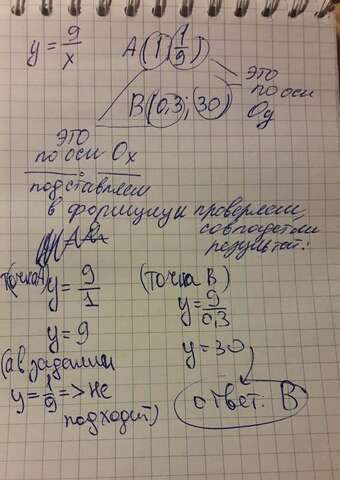 y = 9/x A(1; 1/9)
это
по оси
Oy
B(0,3; 30)
это
по оси Ox
подставляем
в формулу и проверяем,
совпадет ли
результат:
(точка A) y = 9/1
y = 9
(а в задании
y = 1/9 => не
подходит)
(точка B)
y = 9/0,3
y = 30
ответ: B